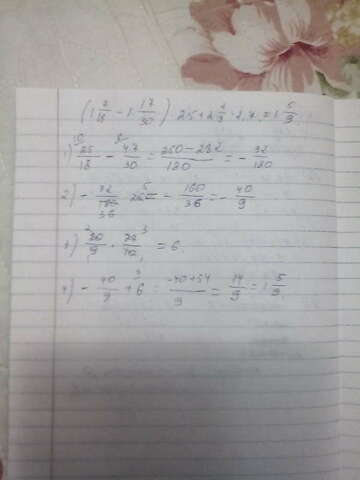 (1 7/18 - 1 17/30) · 25 + 2 2/9 · 2,7 = 1 5/9
1) 25/18 - 47/30 = 250-282/180 = - 32/180
2) - 32/180 · 25 = - 160/36 = - 40/9
3) 20/9 · 27/10 = 6
4) - 40/9 + 6 = -40+54/9 = 14/9 = 1 5/9